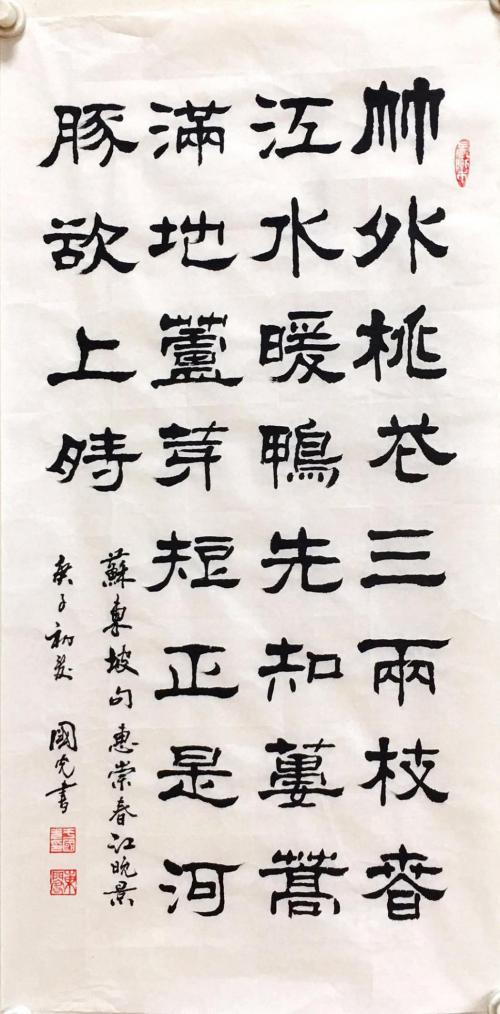 竹外桃花三兩枝春
江水暖鴨先知蔞蒿
滿地蘆芽短正是河
豚欲上時
蘇東坡句惠崇春江晚景
庚子初夏國光書